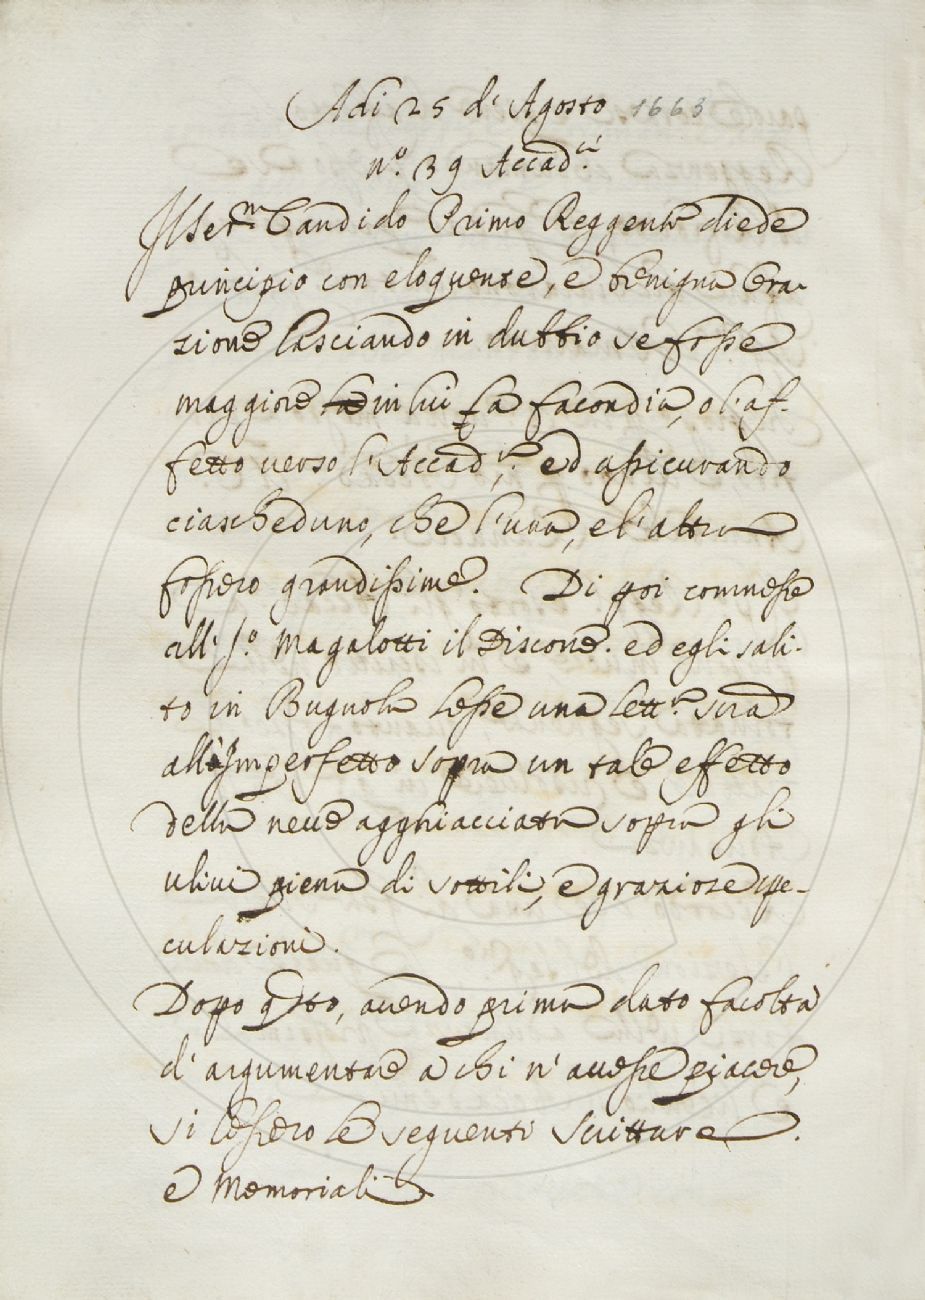 Adi 25 d' Agosto 1663
n.º 39 Accad.ci
Il Ser.mo Candido Primo Reggente diede
principio con eloquente, e benigna Ora-
zione lasciando in dubbio se fosse
maggiore in lui la facondia, o l'af-
fetto verso l'Accad. ed assicurando
ciascheduno, che l'una, e l'altra
fossero grandissime. Di poi commesse
all' S.º Magalotti il Discorre. ed egli sali-
to in Bugnola lesse una Lett.ra sua
all'Imperfetto sopra un tale effetto
della neve agghiacciata sopra gli
ulivi piena di sottili, e graziose spe-
culazioni.
Dopo qsto, avendo prima dato facoltà
d' argumentare a chi n' avesse piacere,
si lessero le seguenti Scritture.
e Memoriali